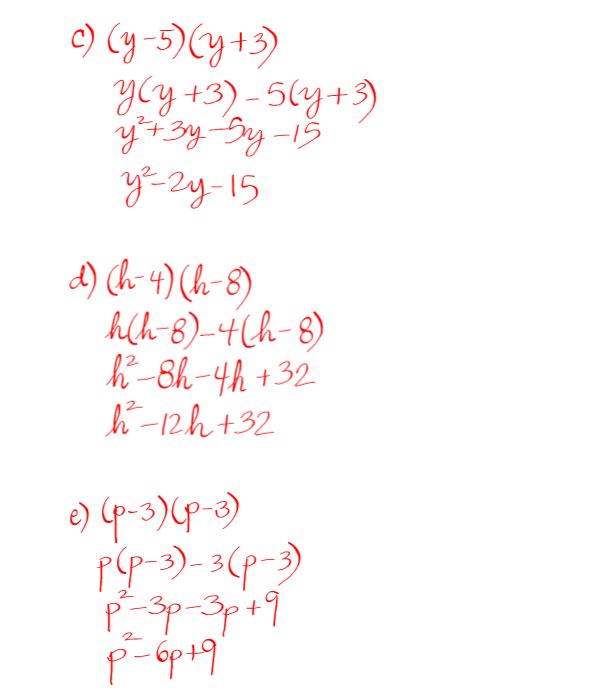 c) (y-5)(y+3)
y(y+3)-5(y+3)
y²+3y-5y-15
y²-2y-15
d) (h-4)(h-8)
h(h-8)-4(h-8)
h²-8h-4h+32
h²-12h+32
e) (p-3)(p-3)
p(p-3)-3(p-3)
p²-3p-3p+9
p²-6p+9